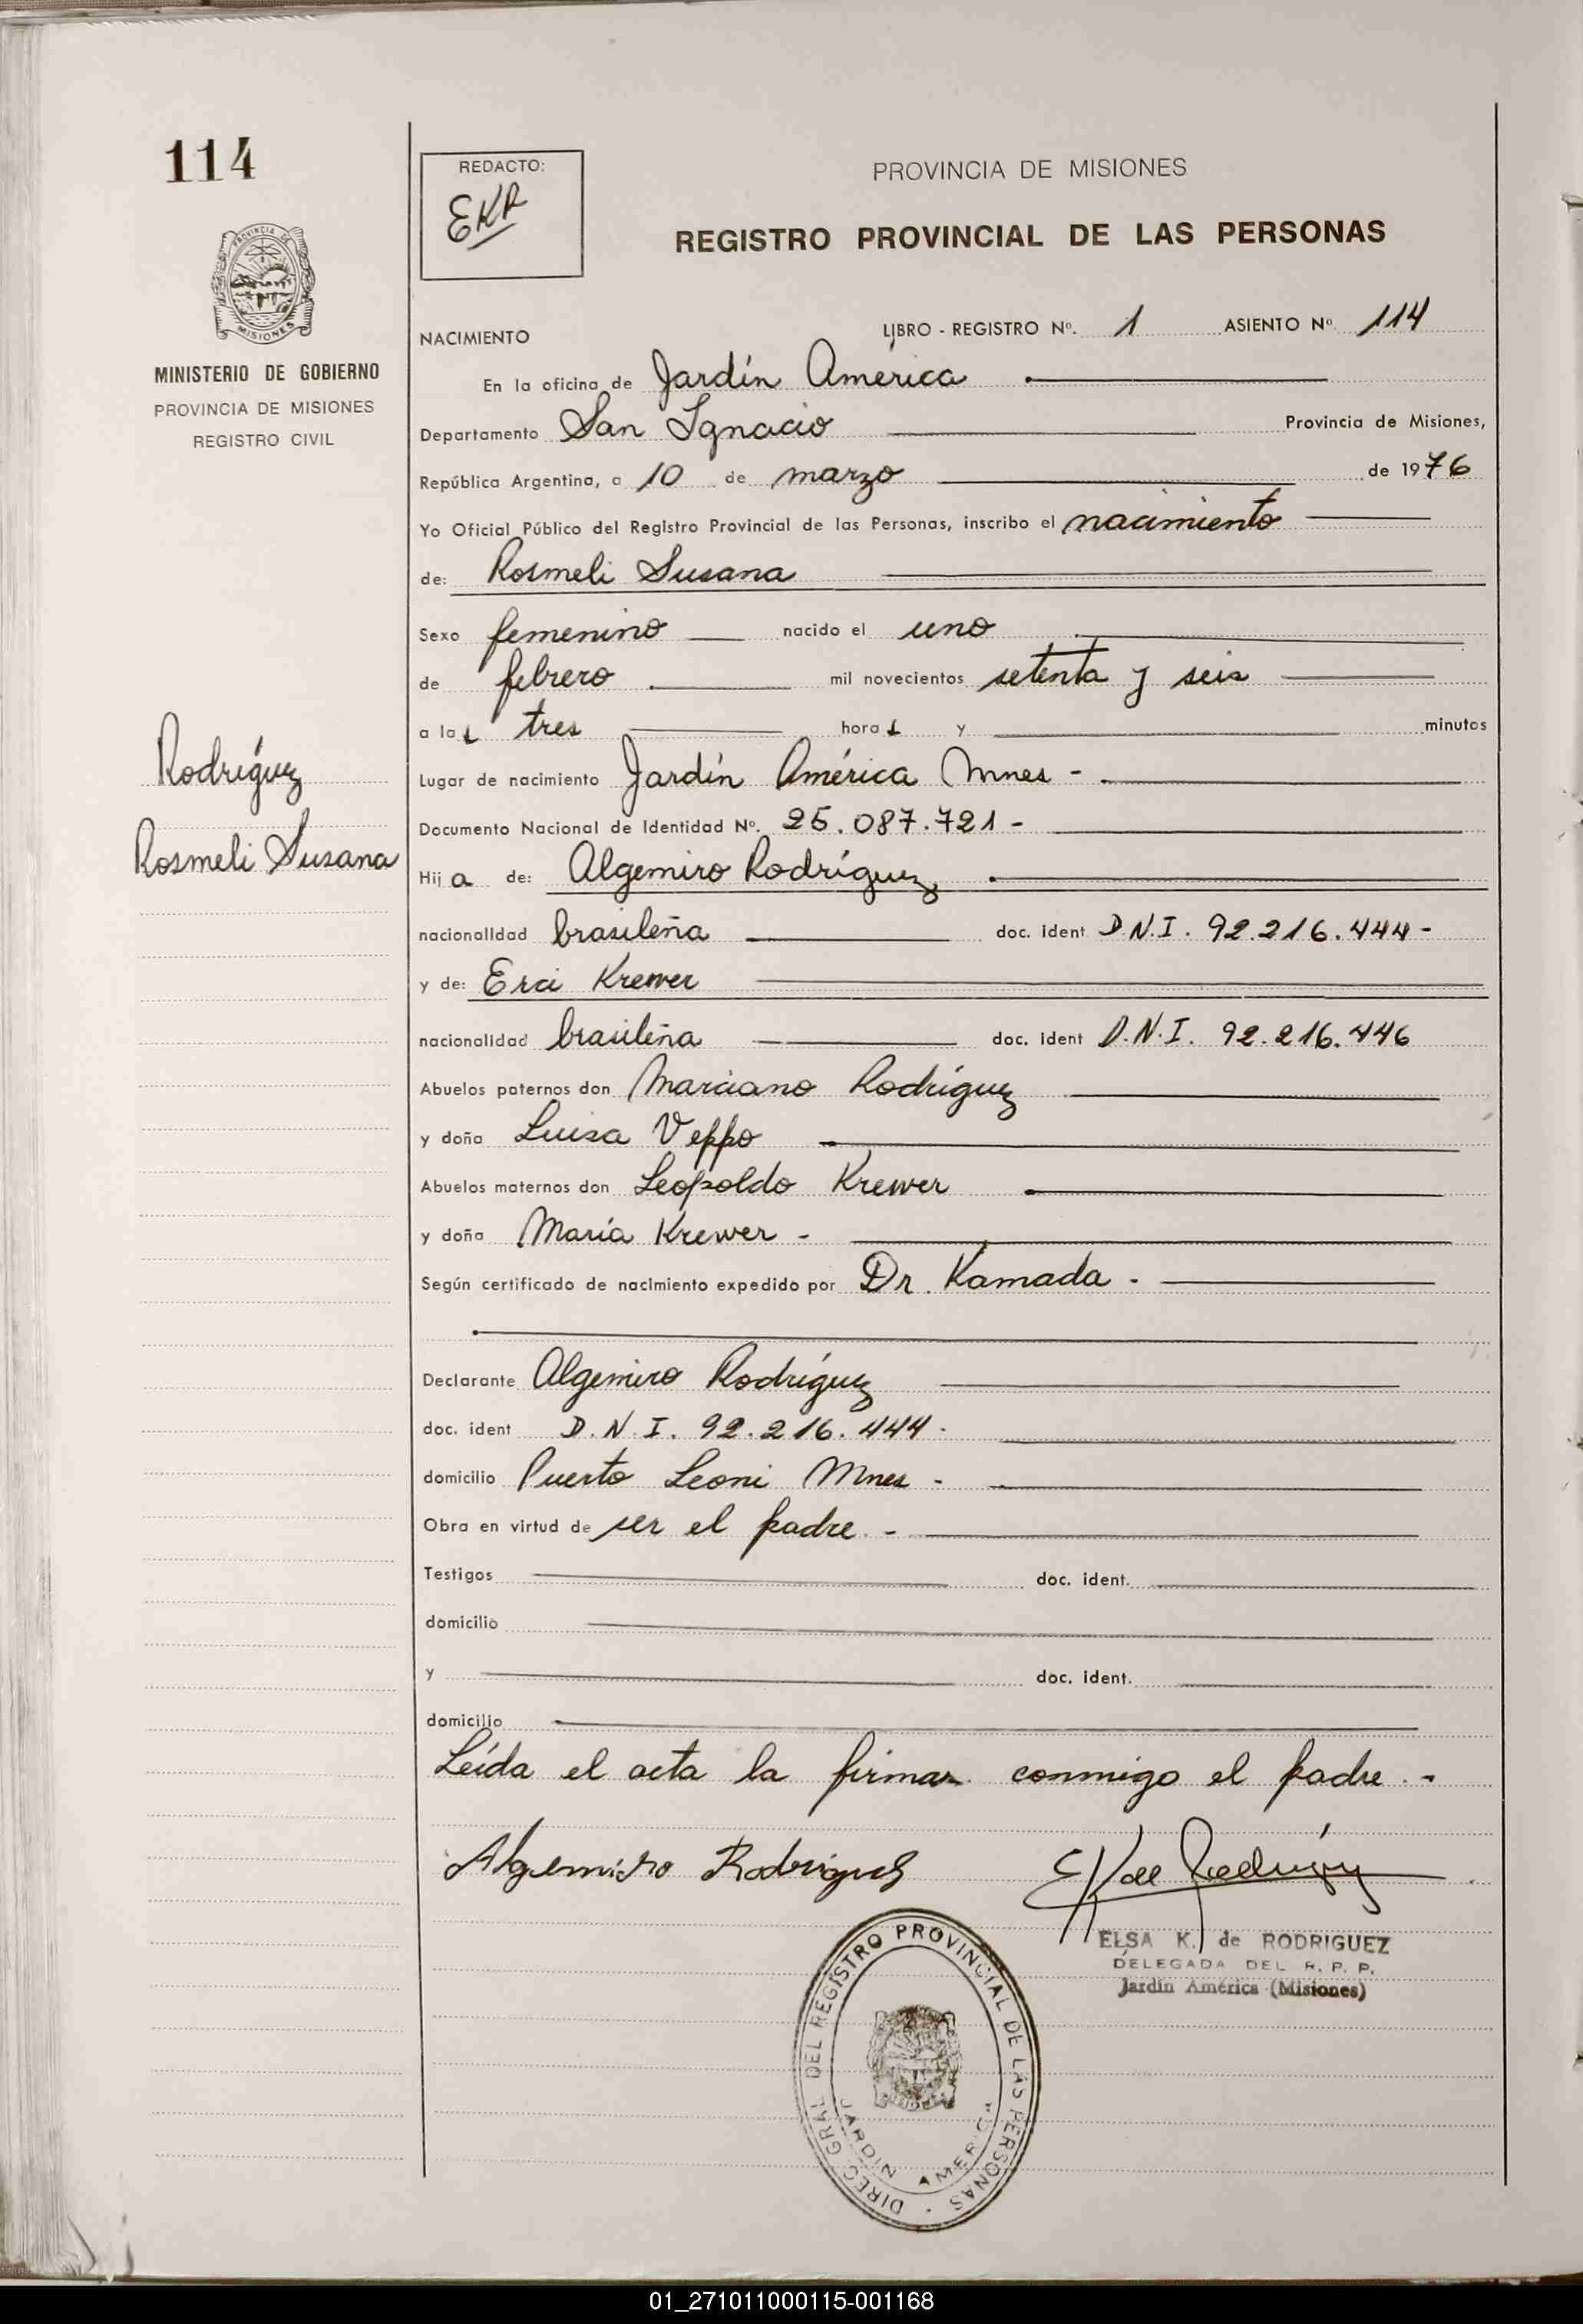 114
REDACTO:
EKR
PROVINCIA DE MISIONES
REGISTRO PROVINCIAL DE LAS PERSONAS
PROVINCIA DE
MISIONES
MINISTERIO DE GOBIERNO
PROVINCIA DE MISIONES
REGISTRO CIVIL
NACIMIENTO
LIBRO - REGISTRO Nº. 1 ASIENTO Nº 114
En la oficina de Jardín América
Departamento San Ignacio Provincia de Misiones,
República Argentina, a 10 de marzo de 1976
Yo Oficial Público del Registro Provincial de las Personas, inscribo el nacimiento
de: Rosmeli Susana
Sexo femenino nacido el uno
de febrero mil novecientos setenta y seis
a las tres horas y minutos
Rodríguez
Rosmeli Susana
Lugar de nacimiento Jardín América Mnes -
Documento Nacional de Identidad Nº. 25.087.721 -
Hija de: Algemiro Rodríguez
nacionalidad brasileña doc. ident D.N.I. 92.216.444 -
y de: Erci Krewer
nacionalidad brasileña doc. ident D.N.I. 92.216.446
Abuelos paternos don Marciano Rodríguez
y doña Luisa Veppo
Abuelos maternos don Leopoldo Krewer
y doña María Krewer -
Según certificado de nacimiento expedido por Dr. Kamada -
Declarante Algemiro Rodríguez
doc. ident D.N.I. 92.216.444 -
domicilio Puerto Leoni Mnes -
Obra en virtud de ser el padre. -
Testigos doc. ident.
domicilio
y doc. ident.
domicilio
Leída el acta la firman conmigo el padre. -
Algemiro Rodrigues
EK de Rodríguez
ELSA K. de RODRIGUEZ
DELEGADA DEL R. P. P.
Jardín América (Misiones)
DIREC. GRAL. DEL REGISTRO PROVINCIAL DE LAS PERSONAS -
JARDIN AMERICA
01_271011000115-001168